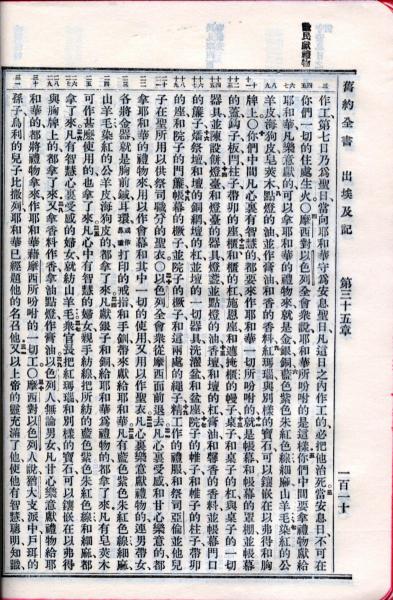 勸民獻禮物
舊約全書 出埃及記 第三十五章 一百二十
作工第七日乃爲聖日當向耶和華守爲安息聖日凡這日之內作工的必把他治死當安息日不可在
你們一切的住處生火〇摩西對以色列全會衆說耶和華所吩咐的是這樣你們中間要拿禮物獻給
耶和華凡樂意獻的可以拿耶和華的禮物來就是金銀銅藍色紫色朱紅色線細麻山羊毛染紅的公
羊皮海狗皮皂莢木點燈的油並作膏油和香的香料紅瑪瑙與別樣的寶石可以鑲嵌在以弗得和胸
牌上〇你們中間凡心裏有智慧的都要來作耶和華一切所吩咐的就是帳幕和帳幕的罩棚並帳幕
的蓋鉤子板門柱子帶卯的座櫃和櫃的杠施恩座和遮掩櫃的幔子桌子和桌子的杠與桌子的一切
器具並陳設餅燈臺和燈臺的器具燈盞並點燈的油香壇和壇的杠膏油和馨香的香料並帳幕門口
的簾子燔祭壇和壇的銅網壇的杠並壇的一切器具洗濯盆和盆座院子的帷子和帷子的柱子帶卯
的座和院子的門簾帳幕的橛子並院子的橛子和這兩處的繩子精工作的禮服和祭司亞倫並他兒
子在聖所用以供祭司職分的聖衣〇以色列全會衆從摩西面前退去凡心裏受感和甘心樂意的都
拿耶和華的禮物來用以作會幕和其中一切的使用又用以作聖衣凡心裏樂意獻禮物的連男帶女
各將金器就是胸前鍼耳環或作鼻環打印的戒指和手釧帶來獻給耶和華凡有藍色紫色朱紅色線細麻
山羊毛染紅的公羊皮海狗皮的都拿了來凡獻銀子和銅給耶和華爲禮物的都拿了來凡有皂莢木
可作甚麼使用的也拿了來凡心中有智慧的婦女親手紡線把所紡的藍色紫色朱紅色線和細麻都
拿了來凡有智慧心裏受感的婦女就紡山羊毛衆官長把紅瑪瑙和別樣的寶石可以鑲嵌在以弗得
與胸牌上的都拿了來又拿香料作香拿油點燈作膏油以色列人無論男女凡甘心樂意獻禮物給耶
和華的都將禮物拿來作耶和華藉摩西所吩咐的一切工〇摩西對以色列人說猶大支派中戶珥的
孫子烏利的兒子比撒列耶和華已經題他的名召他又以上帝的靈充滿了他使他有智慧聰明知識